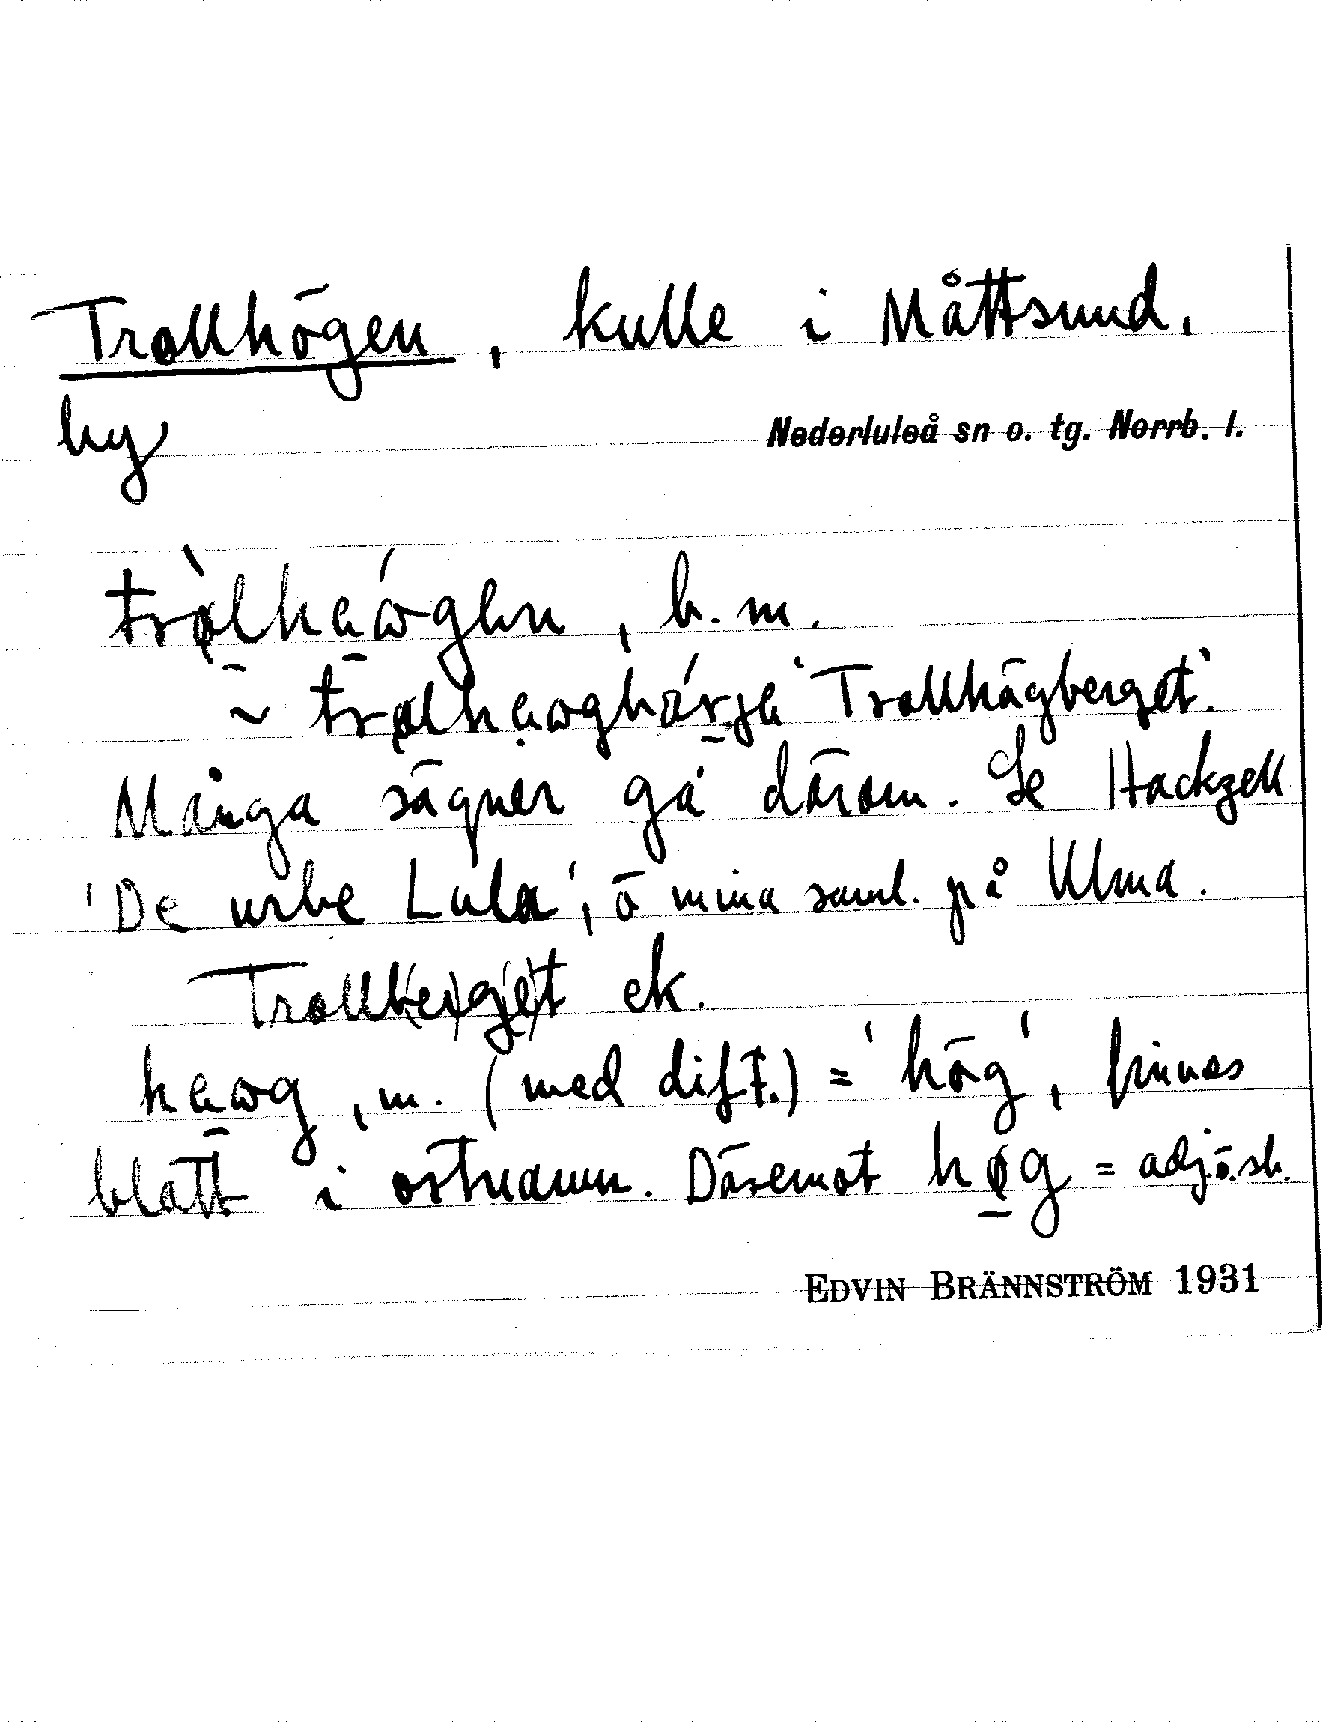 Trollhögen, kulle i Måttsund,
by
Nederluleå sn o. tg. Norrb. l.
tròlhaωghn, b. m.
~ trolhaωgbǽrja 'Trollhögberget'.
Många sägner gå därom. Se Hackzell
'De urbe Lula', o mina saml. på Ulma.
Trollb(er)g(e)t ek.
haωg, m. (med dift.) = 'hög', finnes
blott i ortnamn. Däremot høg = adj o. sb.
EDVIN BRÄNNSTRÖM 1931